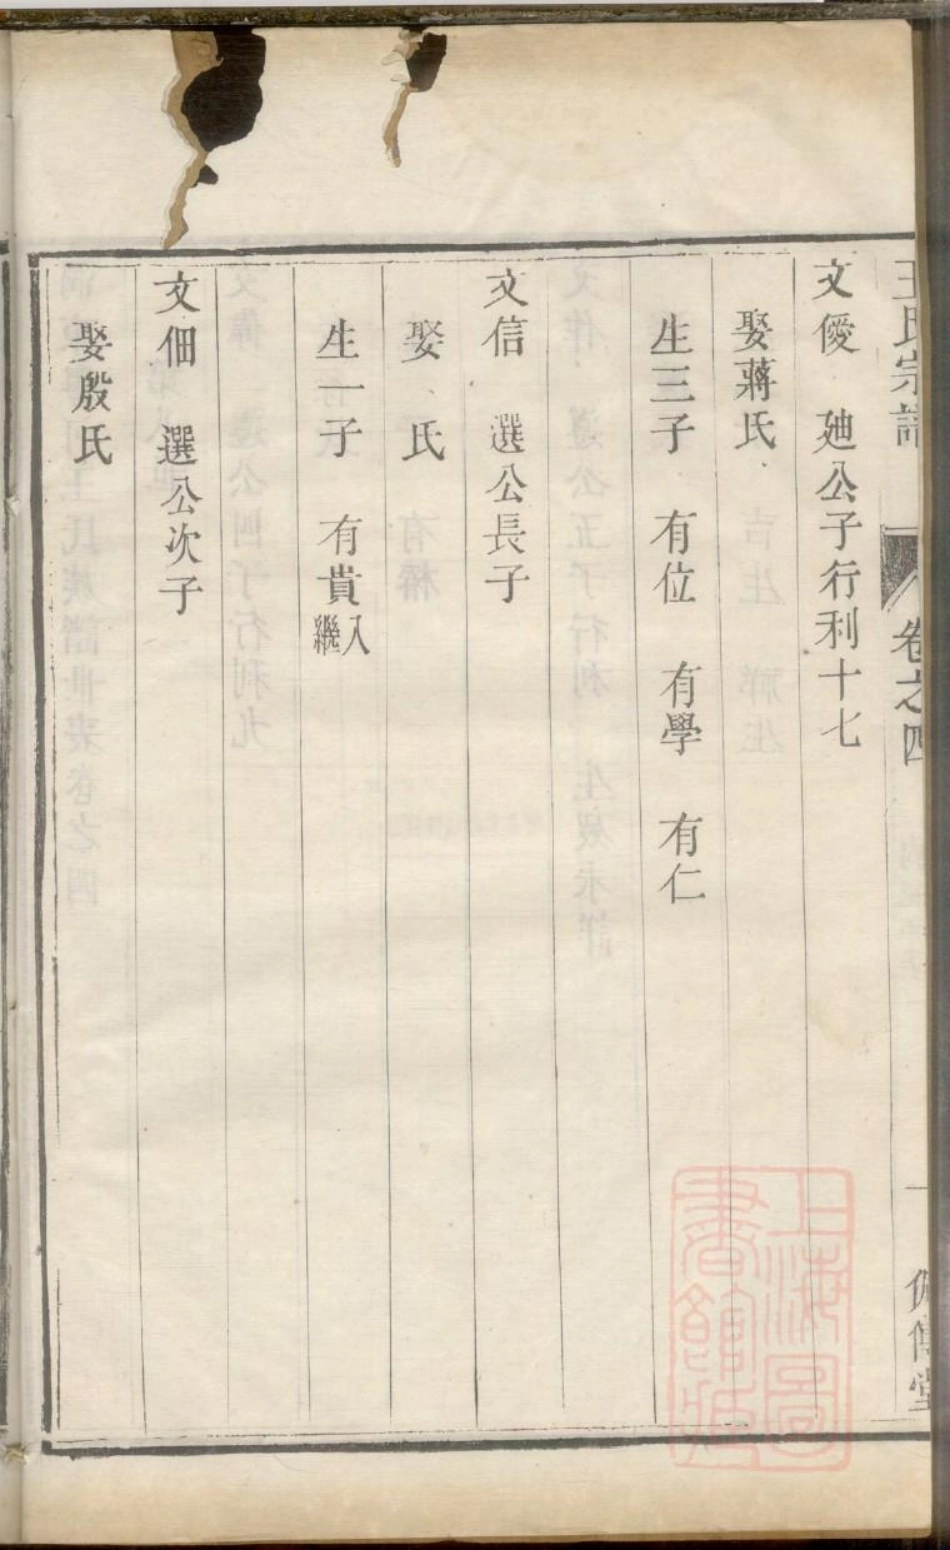 王氏宗譜 卷之四 一
文優 廸公子行利十七
娶蔣氏
生三子 有位 有學 有仁
文信 選公長子
娶 氏
生一子 有貴入繼
文佃 選公次子
娶殷氏
上海圖書館藏